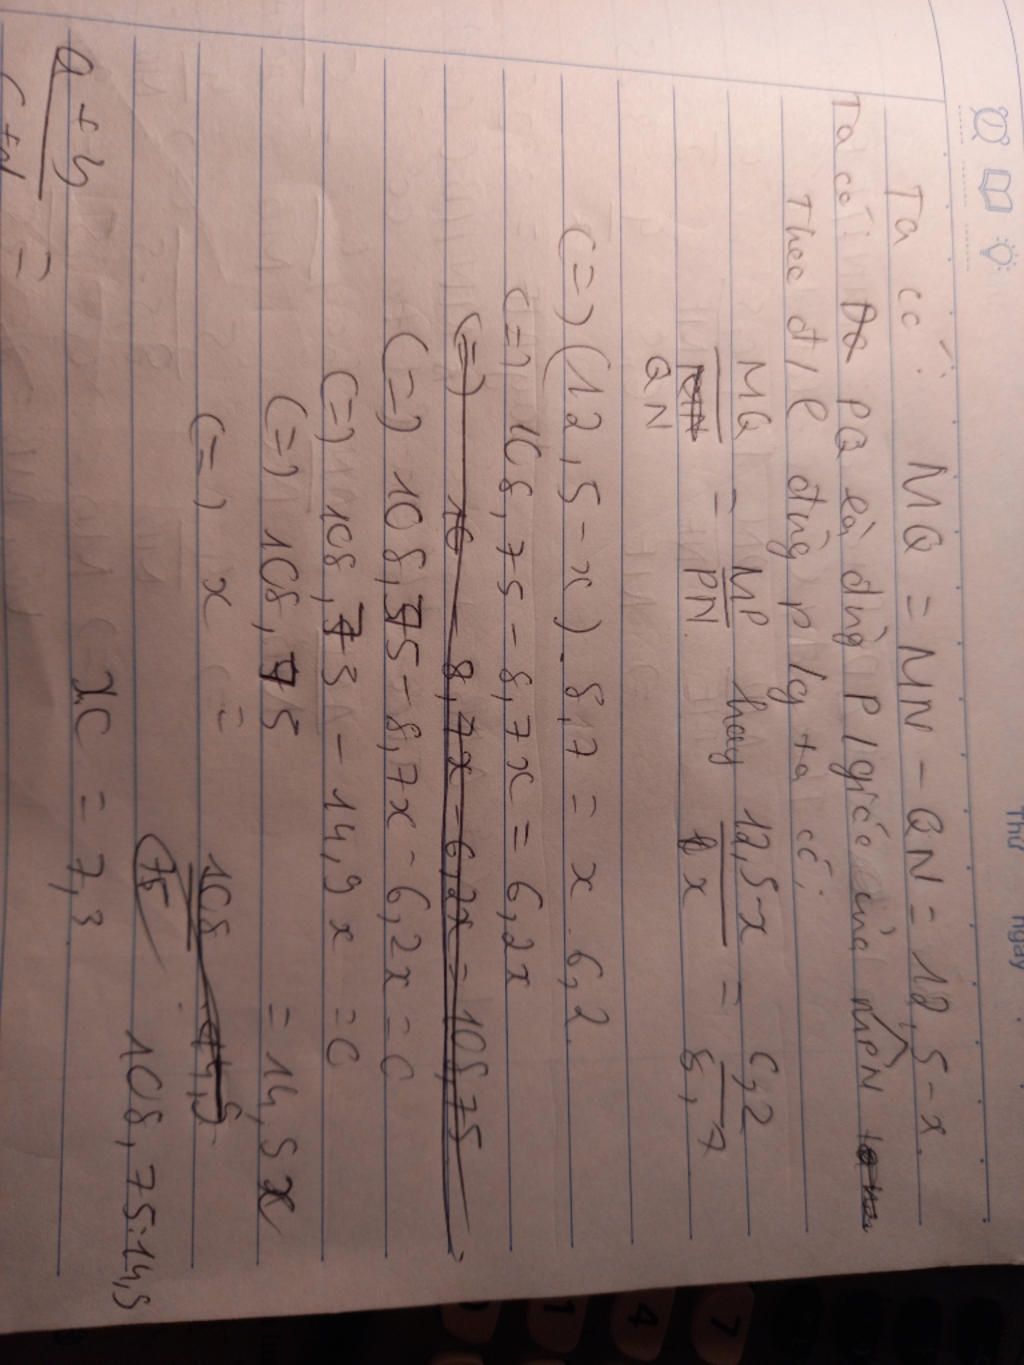 Thứ Ngày
Ta có: MQ = MN - QN = 12,5-x
Ta có: PQ là đường p/giác của MPN
Theo đ/l đường p/g ta có:
MQ/QN = MP/PN hay 12,5-x/x = 6,2/8,7
(=) (12,5-x).8,7 = x.6,2
(=) 108,75-8,7x = 6,2x
(=) 10 8,7x-6,2x = 108,75
(=) 108,75-8,7x-6,2x=0
(=) 108,75-14,9x=0
(=) 108,75 = 14,9x
(=) x = 108 14,9
75 108,75:14,9
x = 7,3
a+b
c+d =
7
4
1
0